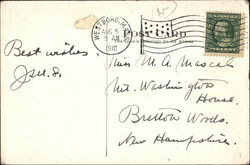 WESTBORO, MASS.
AUG 5
9 AM
1910
POST CARD
Best wishes.
Miss M. A. Mascal
Mt. Washington
House,
Bretton Woods.
New Hampshire.